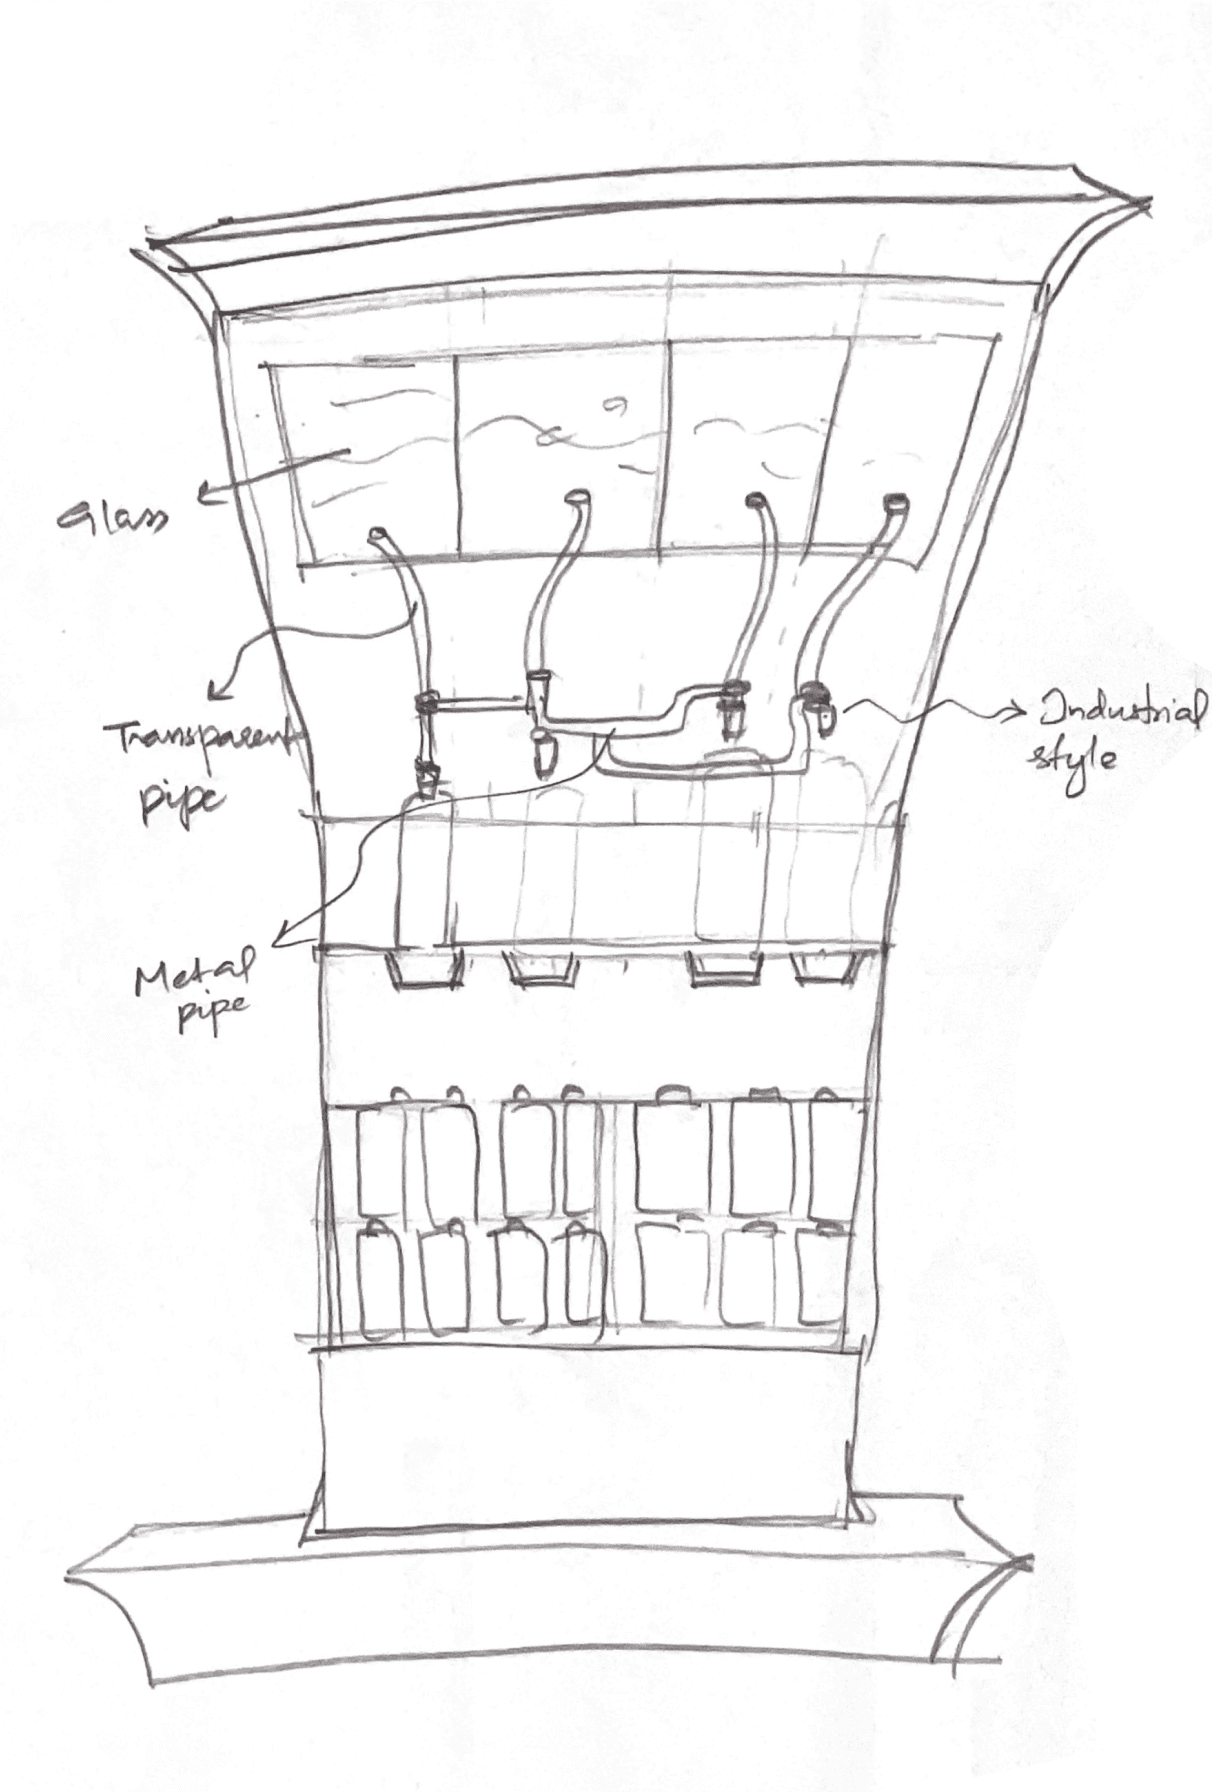 Glass
Transparent
pipe
Industrial
style
Metal
pipe